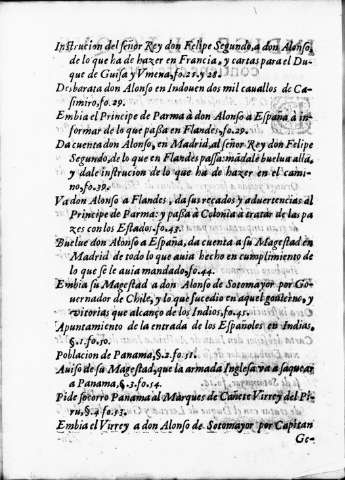 Instrucion del señor Rey don Felipe Segundo, a don Alonso,
de lo que ha de hazer en Francia, y cartas para el Du-
que de Guisa y Vmena, fo.21.y 28.
Desbarata don Alonso en Indouen dos mil cauallos de Ca-
simiro, fo.29.
Embia el Principe de Parma à don Alonso a España à in-
formar de lo que passa en Flandes, fo.29.
Da cuenta don Alonso, en Madrid, al señor Rey don Felipe
Segundo, de lo que en Flandes passa: mādale buelua allà,
y dale instrucion de lo que ha de hazer en el cami-
no, fo.39.
Va don Alonso a Flandes, da sus recados y aduertencias al
Principe de Parma: y passa à Colonia a tratar de las pa
zes con los Estados. fo.43.
Buelue don Alonso a España, da cuenta a su Magestad en
Madrid de todo lo que auia hecho en cumplimiento de
lo que se le auia mandado, fo.44.
Embia su Magestad a don Alonso de Sotomayor por Go-
uernador de Chile, y lo que sucedio en aquel gouierno, y
vitorias que alcanço de los Indios, fo.45.
Apuntamiento de la entrada de los Españoles en Indias,
§.1.fo.50.
Poblacion de Panama, §.2.fo.51.
Auiso de su Magestad, que la armada Inglesa va a saquear
a Panama, §.3.fo.54.
Pide socorro Panama al Marques de Cañete Virrey del Pi-
ru, §.4 fo.53.
Embia el Virrey a don Alonso de Sotomayor por Capitan
Ge-